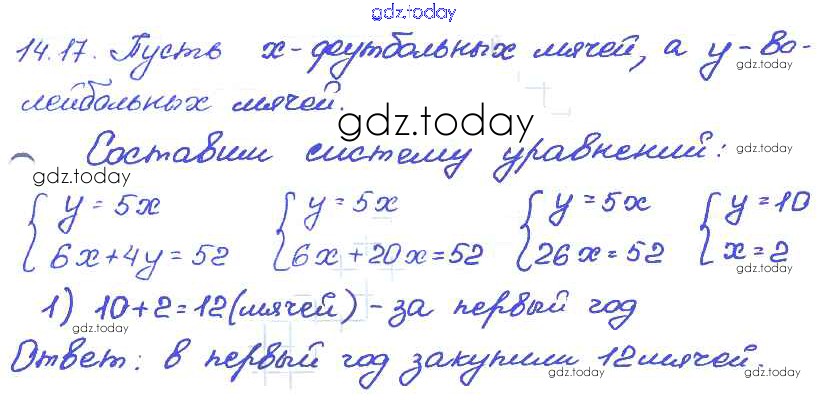 gdz.today
14.17. Пусть x - футбольных мячей, а y - во-
gdz.today
лейбольных мячей.
gdz.today
Составим систему уравнений:
gdz.today
gdz.today
{ y = 5x { y = 5x { y = 5x { y = 10
{ 6x + 4y = 52 { 6x + 20x = 52 { 26x = 52 { x = 2
gdz.today
1) 10 + 2 = 12 (мячей) - за первый год
gdz.today
Ответ: в первый год закупили 12 мячей.
gdz.today gdz.today